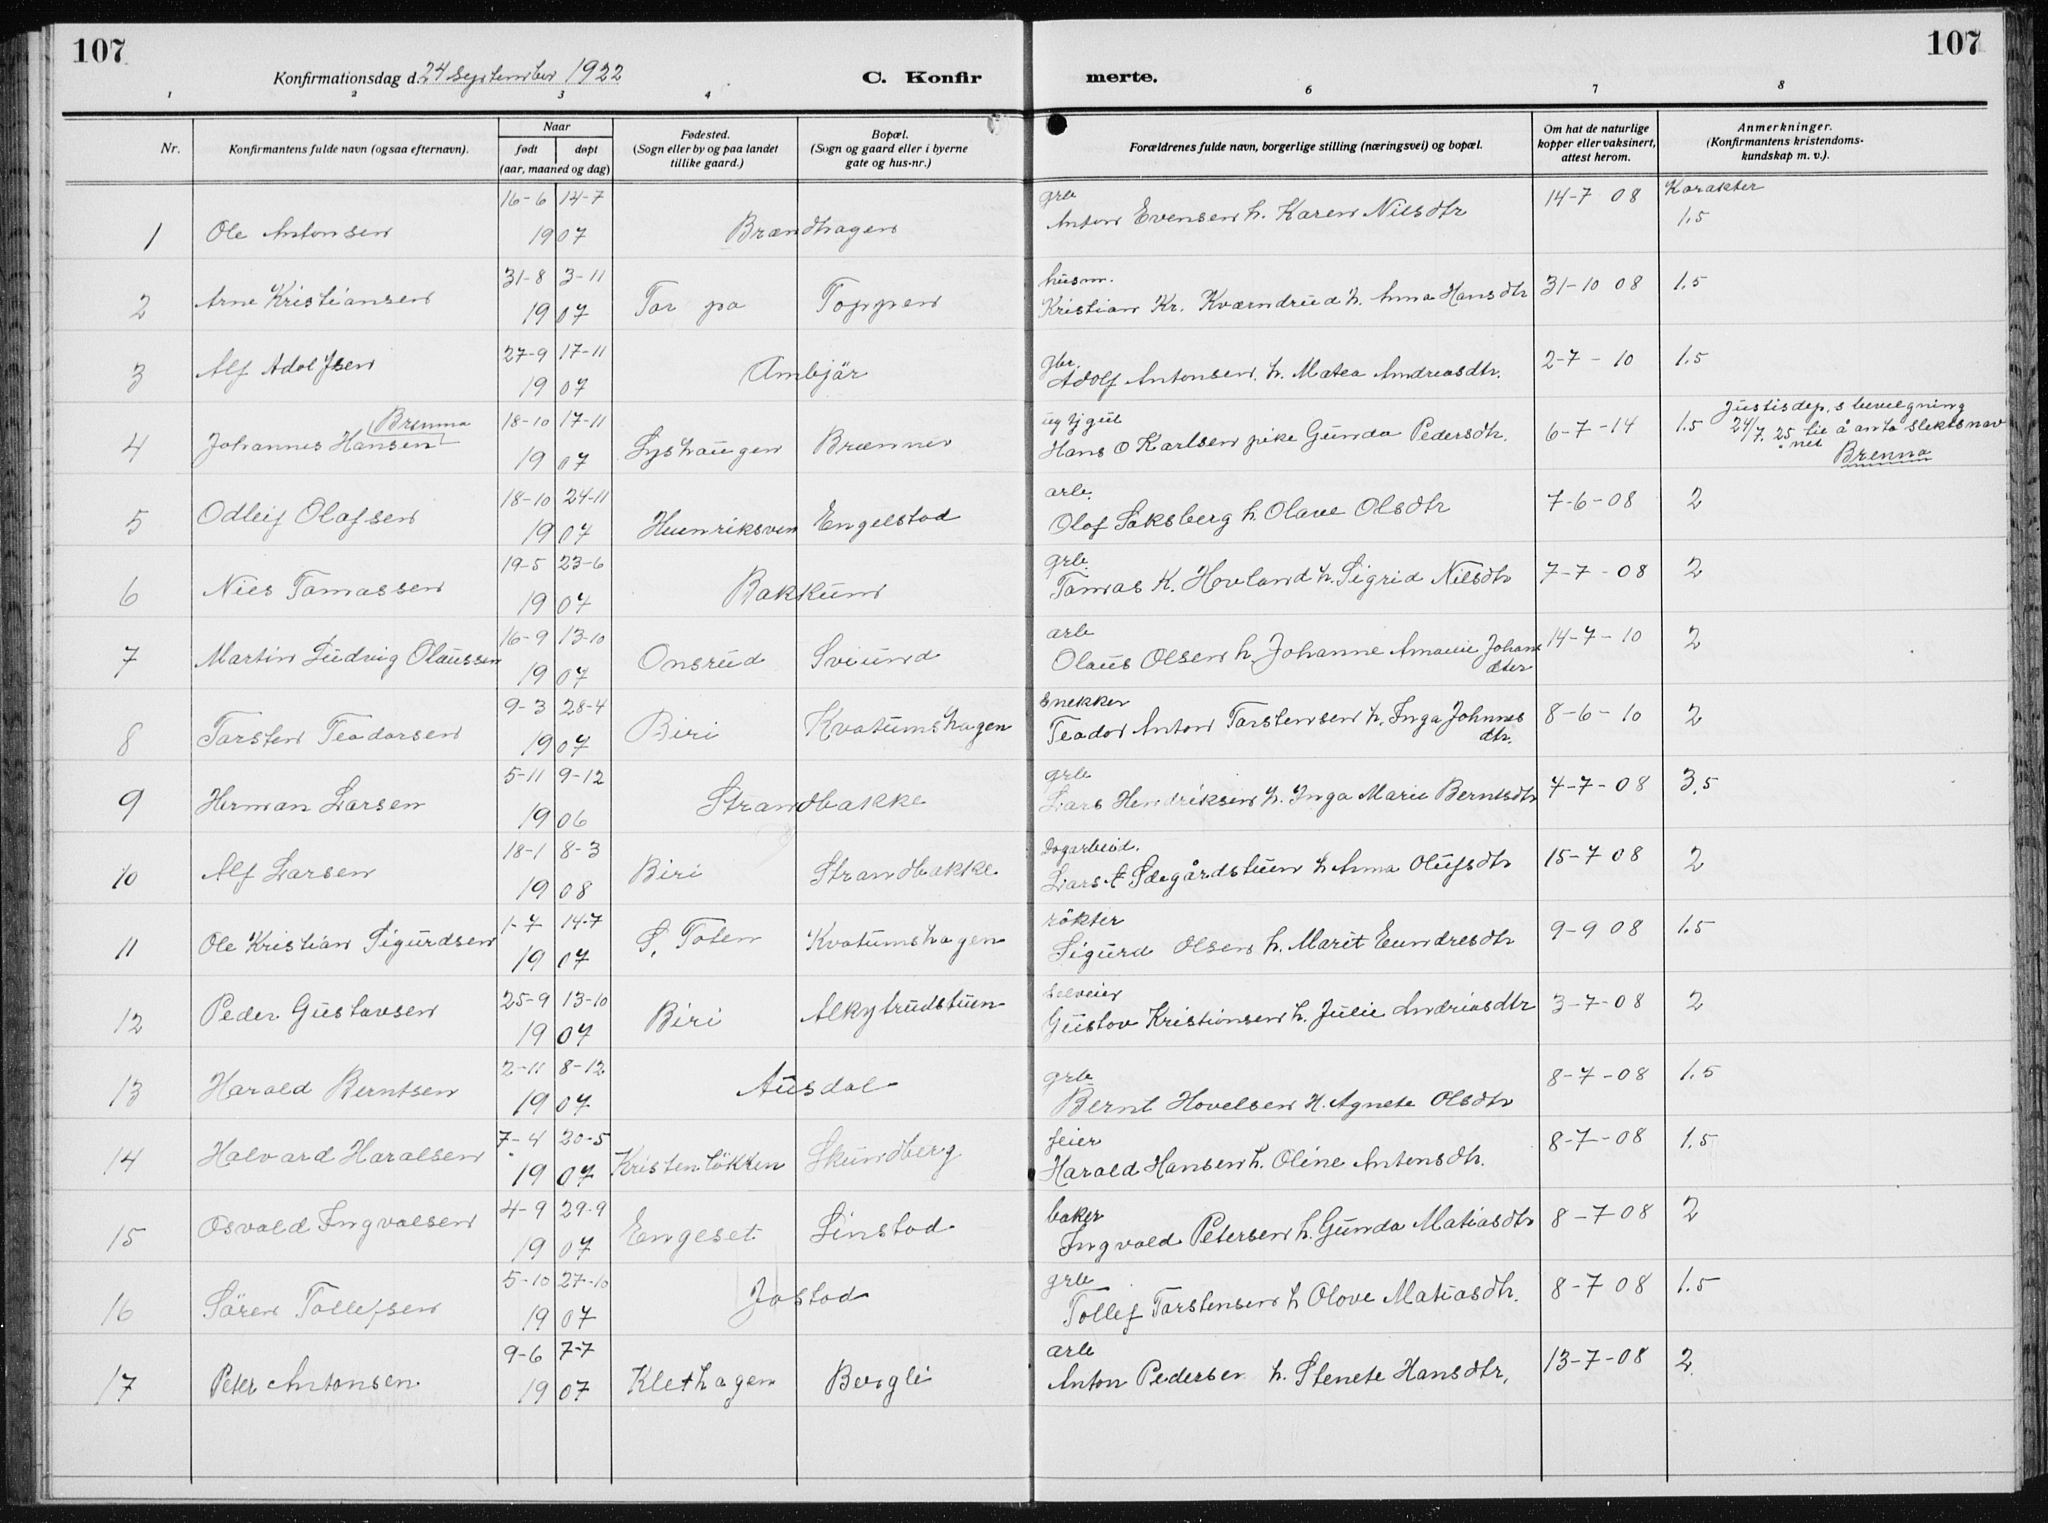 107
107
Konfirmationsdag d. 24 September 1922
C. Konfir merte.
1 2 3 4 6 7 8
Nr.
Konfirmantens fulde navn (ogsaa efternavn).
Naar
født døpt
(aar, maaned og dag)
Fødested.
(Sogn eller by og paa landet
tillike gaard.)
Bopæl.
(Sogn og gaard eller i byerne
gate og hus-nr.)
Forældrenes fulde navn, borgerlige stilling (næringsvei) og bopæl.
Om hat de naturlige
kopper eller vaksinert,
attest herom.
Anmerkninger.
(Konfirmantens kristendoms-
kundskap m. v.).
16-6 14-7 grb 14-7 08 Karakter
1 Ole Antonsen 1907 Brændhagen Anton Evensen h. Karen Nilsdtr 1.5
31-8 3-11 husm. 31-10 08 1.5
2 Arne Kristiansen 1907 Torpa Toppen Kristian Kr. Kværndrud h. Anna Hansdtr
27-9 17-11 gbr. 2-7-10 1.5
3 Alf Adolfsen 1907 Ambjör Adolf Antonsen h. Matea Andreasdtr.
Brenna 18-10 17-11 6-7-14 1.5 Justisdep.s bevilgning
4 Johannes Hansen 1907 Lyshaugen Brænner Hans O Karlsen pike Gunda Pedersdtr. 24/7. 25 til å anta slektsnav
net Brenna
18-10 24-11 arb. 7-6-08 2
5 Odleif Olafsen 1907 Engelstad Olaf Saksberg h. Olave Olsdtr
19-5 23-6 grb. 7-7-08 2
6 Nils Tomassen 1907 Bakkum Tomas K. Hovland h. Sigrid Nilsdtr
16-9 13-10 arb 14-7-10 2
7 Martin Ludvig Olaussen 1907 Onsrud Sviund Olaus Olsen h. Johanne Amalie Johans
dter
9-3 28-4 Snekker 8-6-10 2
8 Torsten Teodorsen 1907 Biri Kvatumshagen Teodor Anton Torstensen h. Inga Johnnes
dtr.
5-11 9-12 grb 4-7-08 3.5
9 Herman Larsen 1906 Strandbakke Lars Hendriksen h. Inga Marie Berntsdtr
18-1 8-3 Dagarbeid. 15-7 08 2
10 Alf Larsen 1908 Biri Strandbakke Lars h Anna Olufsdtr
1-7 14-7 rökter 9-9 08 1.5
11 Ole Kristian Sigurdsen 1907 S. Toten Kvatumshagen Sigurd Olsen h. Marit Eundresdtr
25-9 13-10 selveier 3-7-08 2
12 Peder Gustavsen 1907 Biri Alkytrudstuen Gustav Kristiansen h. Julie Andreasdtr
2-11 8-12 grb 8-7-08 1.5
13 Harald Berntsen 1907 Ausdal Bernt Hovelsen H. Agnete Olsdtr
7-4 20-5 feier 8-7-08 1.5
14 Halvard Haralsen 1907 Kristenlökken Skundberg Harald Hansen h. Oline Antonsdtr.
4-9 29-9 baker 8-7 08 2
15 Osvald Ingvalsen 1907 Engeset Linstad Ingvald Petersen h. Gunda Matiasdtr
5-10 27-10 grb 8-7 08 1.5
16 Sören Tollefsen 1907 Jostad Tollef Torstensen h Olove Matiasdtr.
9-6 7-7 arb 13-7-08 2.
17 Peter Antonsen 1907 Klethagen Bergli Anton Pedersen h. Stenete Hansdtr.